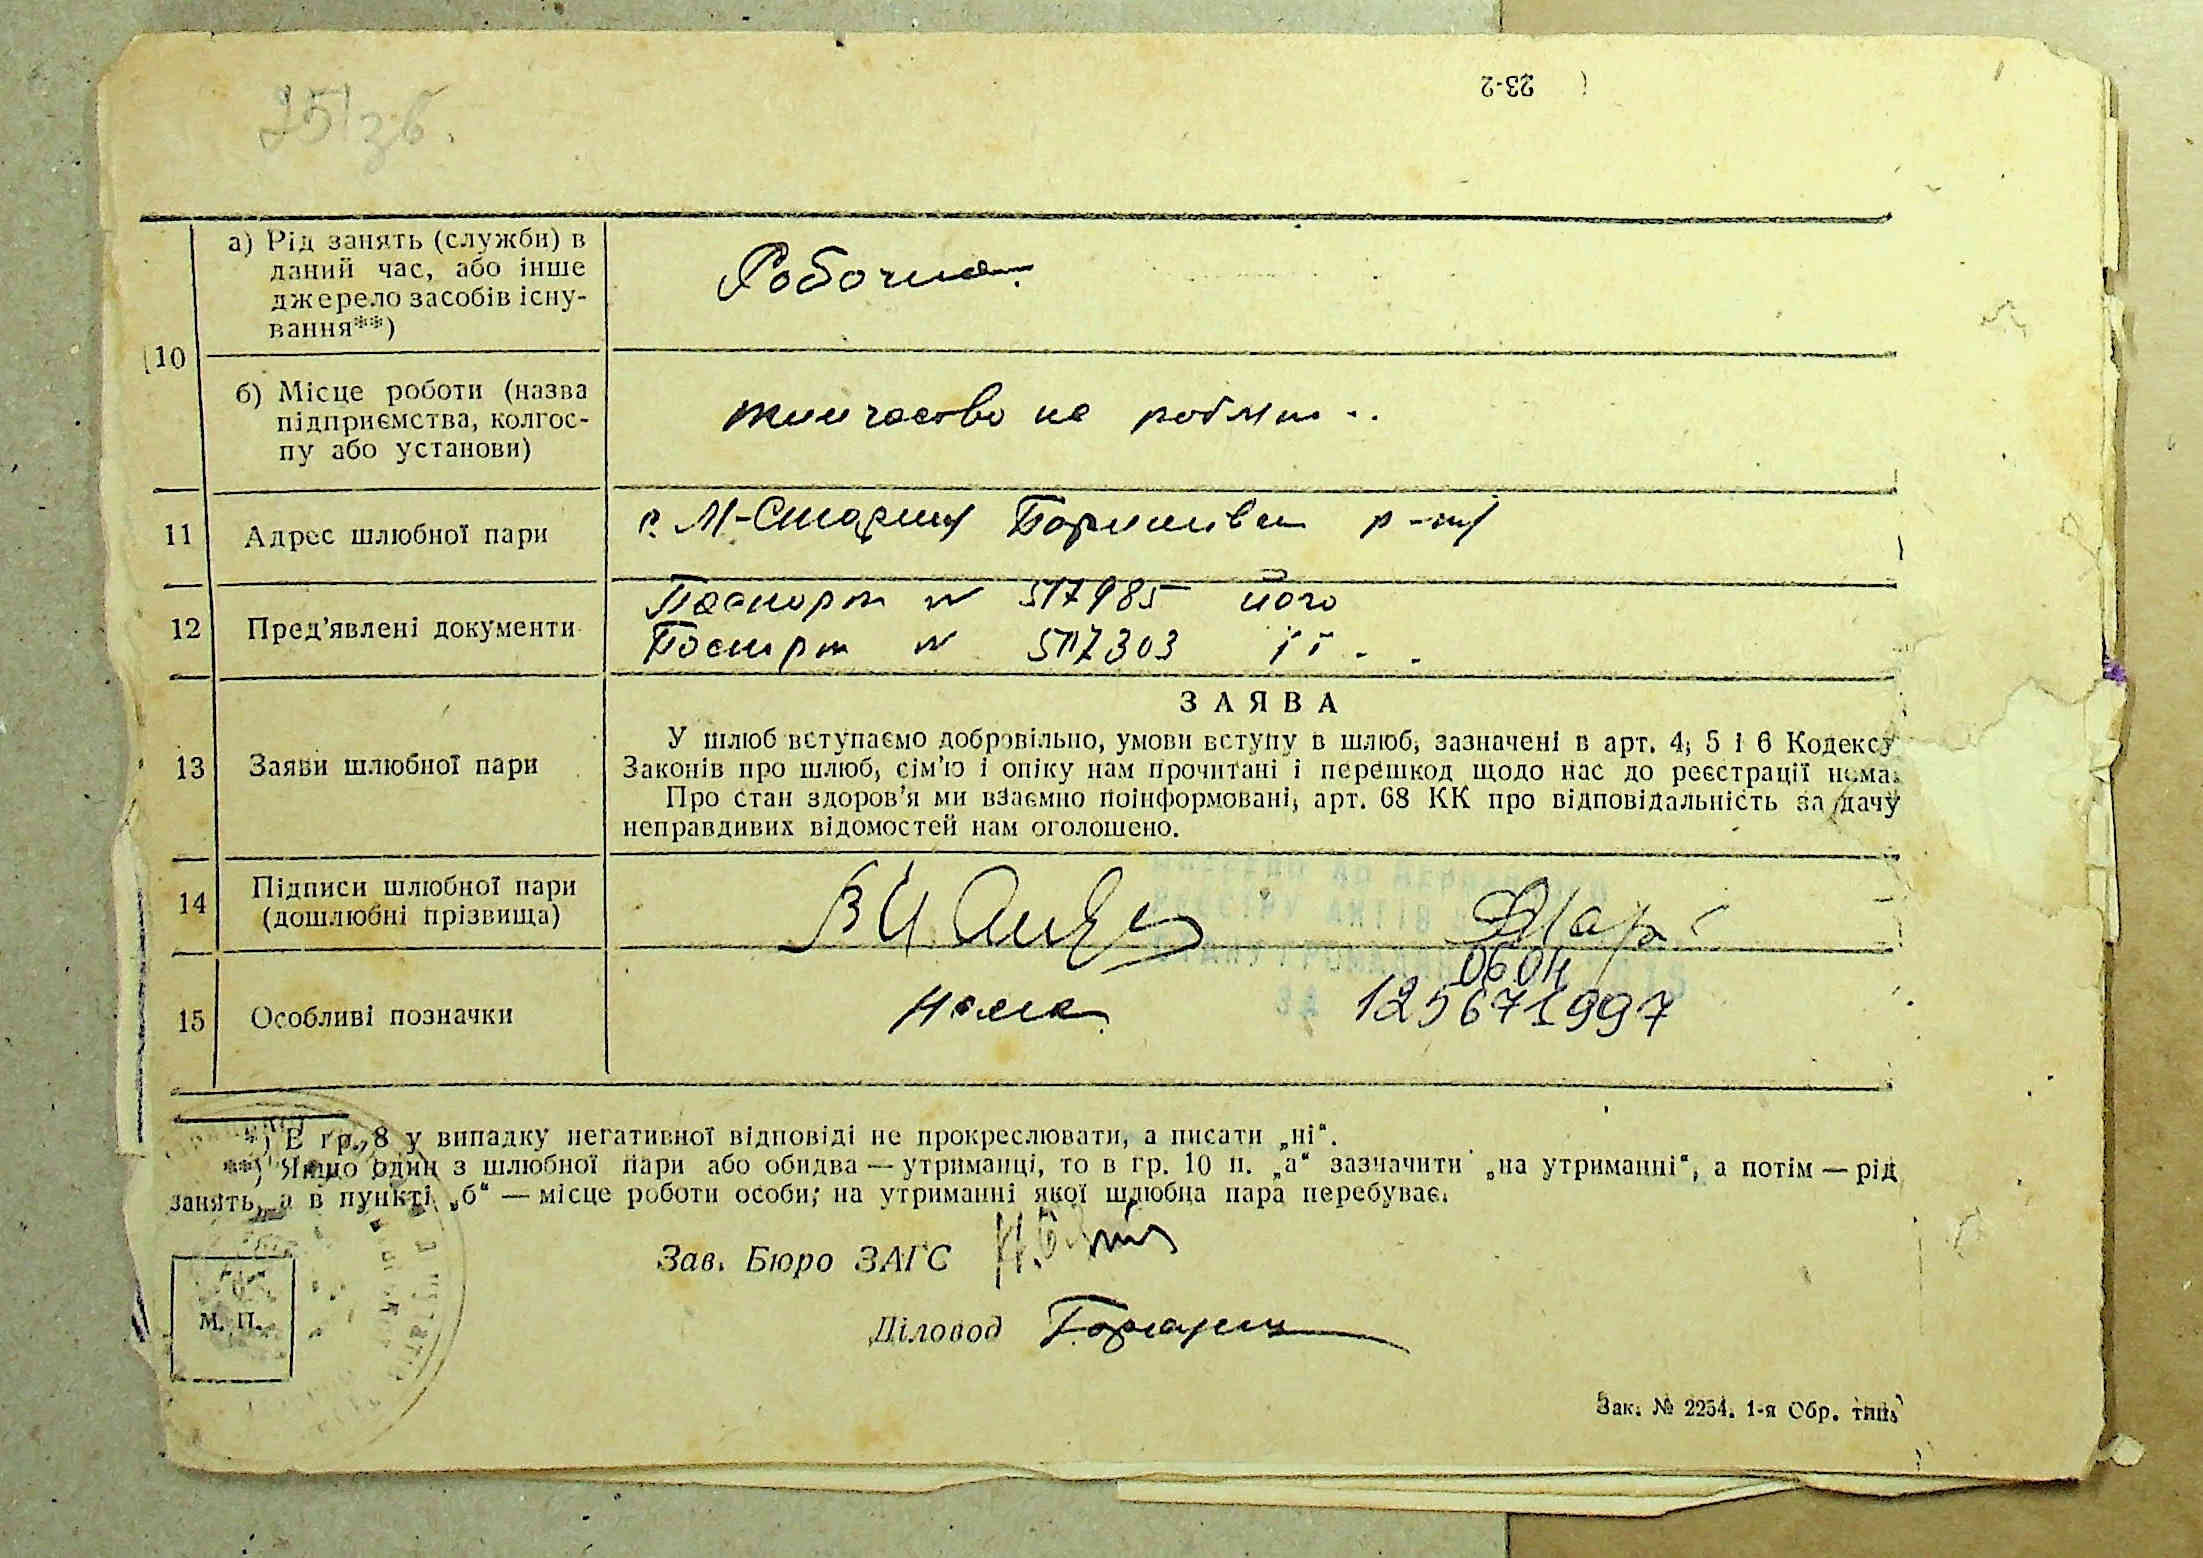 251 зв.
23-2
10
а) Рід занять (служби) в
даний час, або інше
джерело засобів існу-
вання**)
Робочие
б) Місце роботи (назва
підприємства, колгос-
пу або установи)
тимчасово не робит
11 Адрес шлюбної пари
с. М-Стариця Бориспівськ р-ну
12 Пред’явлені документи
Паспорт № 517985 його
Паспорт № 517303 її
13 Заяви шлюбної пари
ЗАЯВА
У шлюб вступаємо добровільно, умови вступу в шлюб, зазначені в арт. 4, 5 і 6 Кодексу
Законів про шлюб, сім’ю і опіку нам прочитані і перешкод щодо нас до реєстрації нема.
Про стан здоров’я ми взаємно поінформовані, арт. 68 КК про відповідальність за дачу
неправдивих відомостей нам оголошено.
14 Підписи шлюбної пари
(дошлюбні прізвища)
РЕЄСТРУ АКТІВ
СТАНУ ГРОМАДЯН
ЗА
15 Особливі позначки
Нема
125671997
*) В гр. 8 у випадку негативної відповіді не прокреслювати, а писати „ні“.
**) Якщо один з шлюбної пари або обидва — утриманці, то в гр. 10 п. „а“ зазначити „на утриманні“, а потім — рід
занять, а в пункті „б“ — місце роботи особи, на утриманні якої шлюбна пара перебуває.
Зав. Бюро ЗАГС
Діловод
М. П.
Зак. № 2254. 1-я Обр. тип.